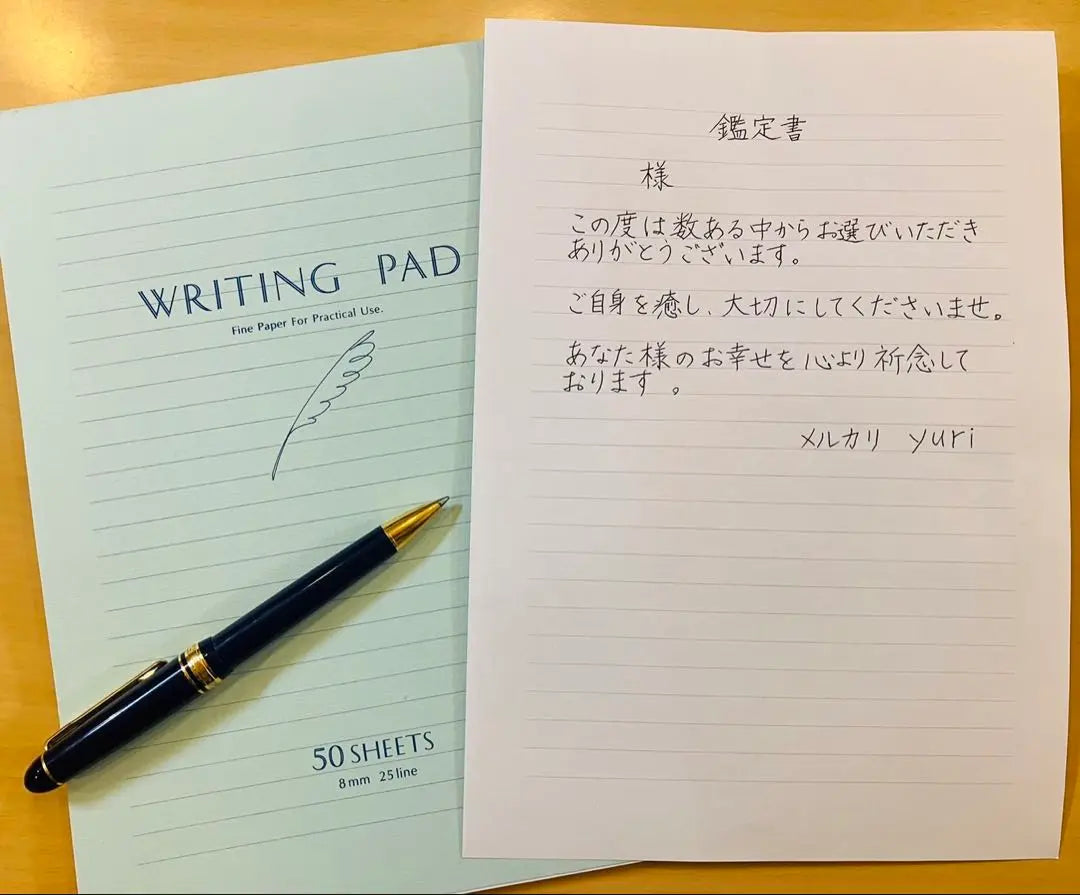 WRITING PAD
Fine Paper For Practical Use.
50 SHEETS
8mm 25line
鑑定書
様
この度は数ある中からお選びいただき
ありがとうございます。
ご自身を癒し、大切にしてくださいませ。
あなた様のお幸せを心より祈念して
おります。
メルカリ yuri